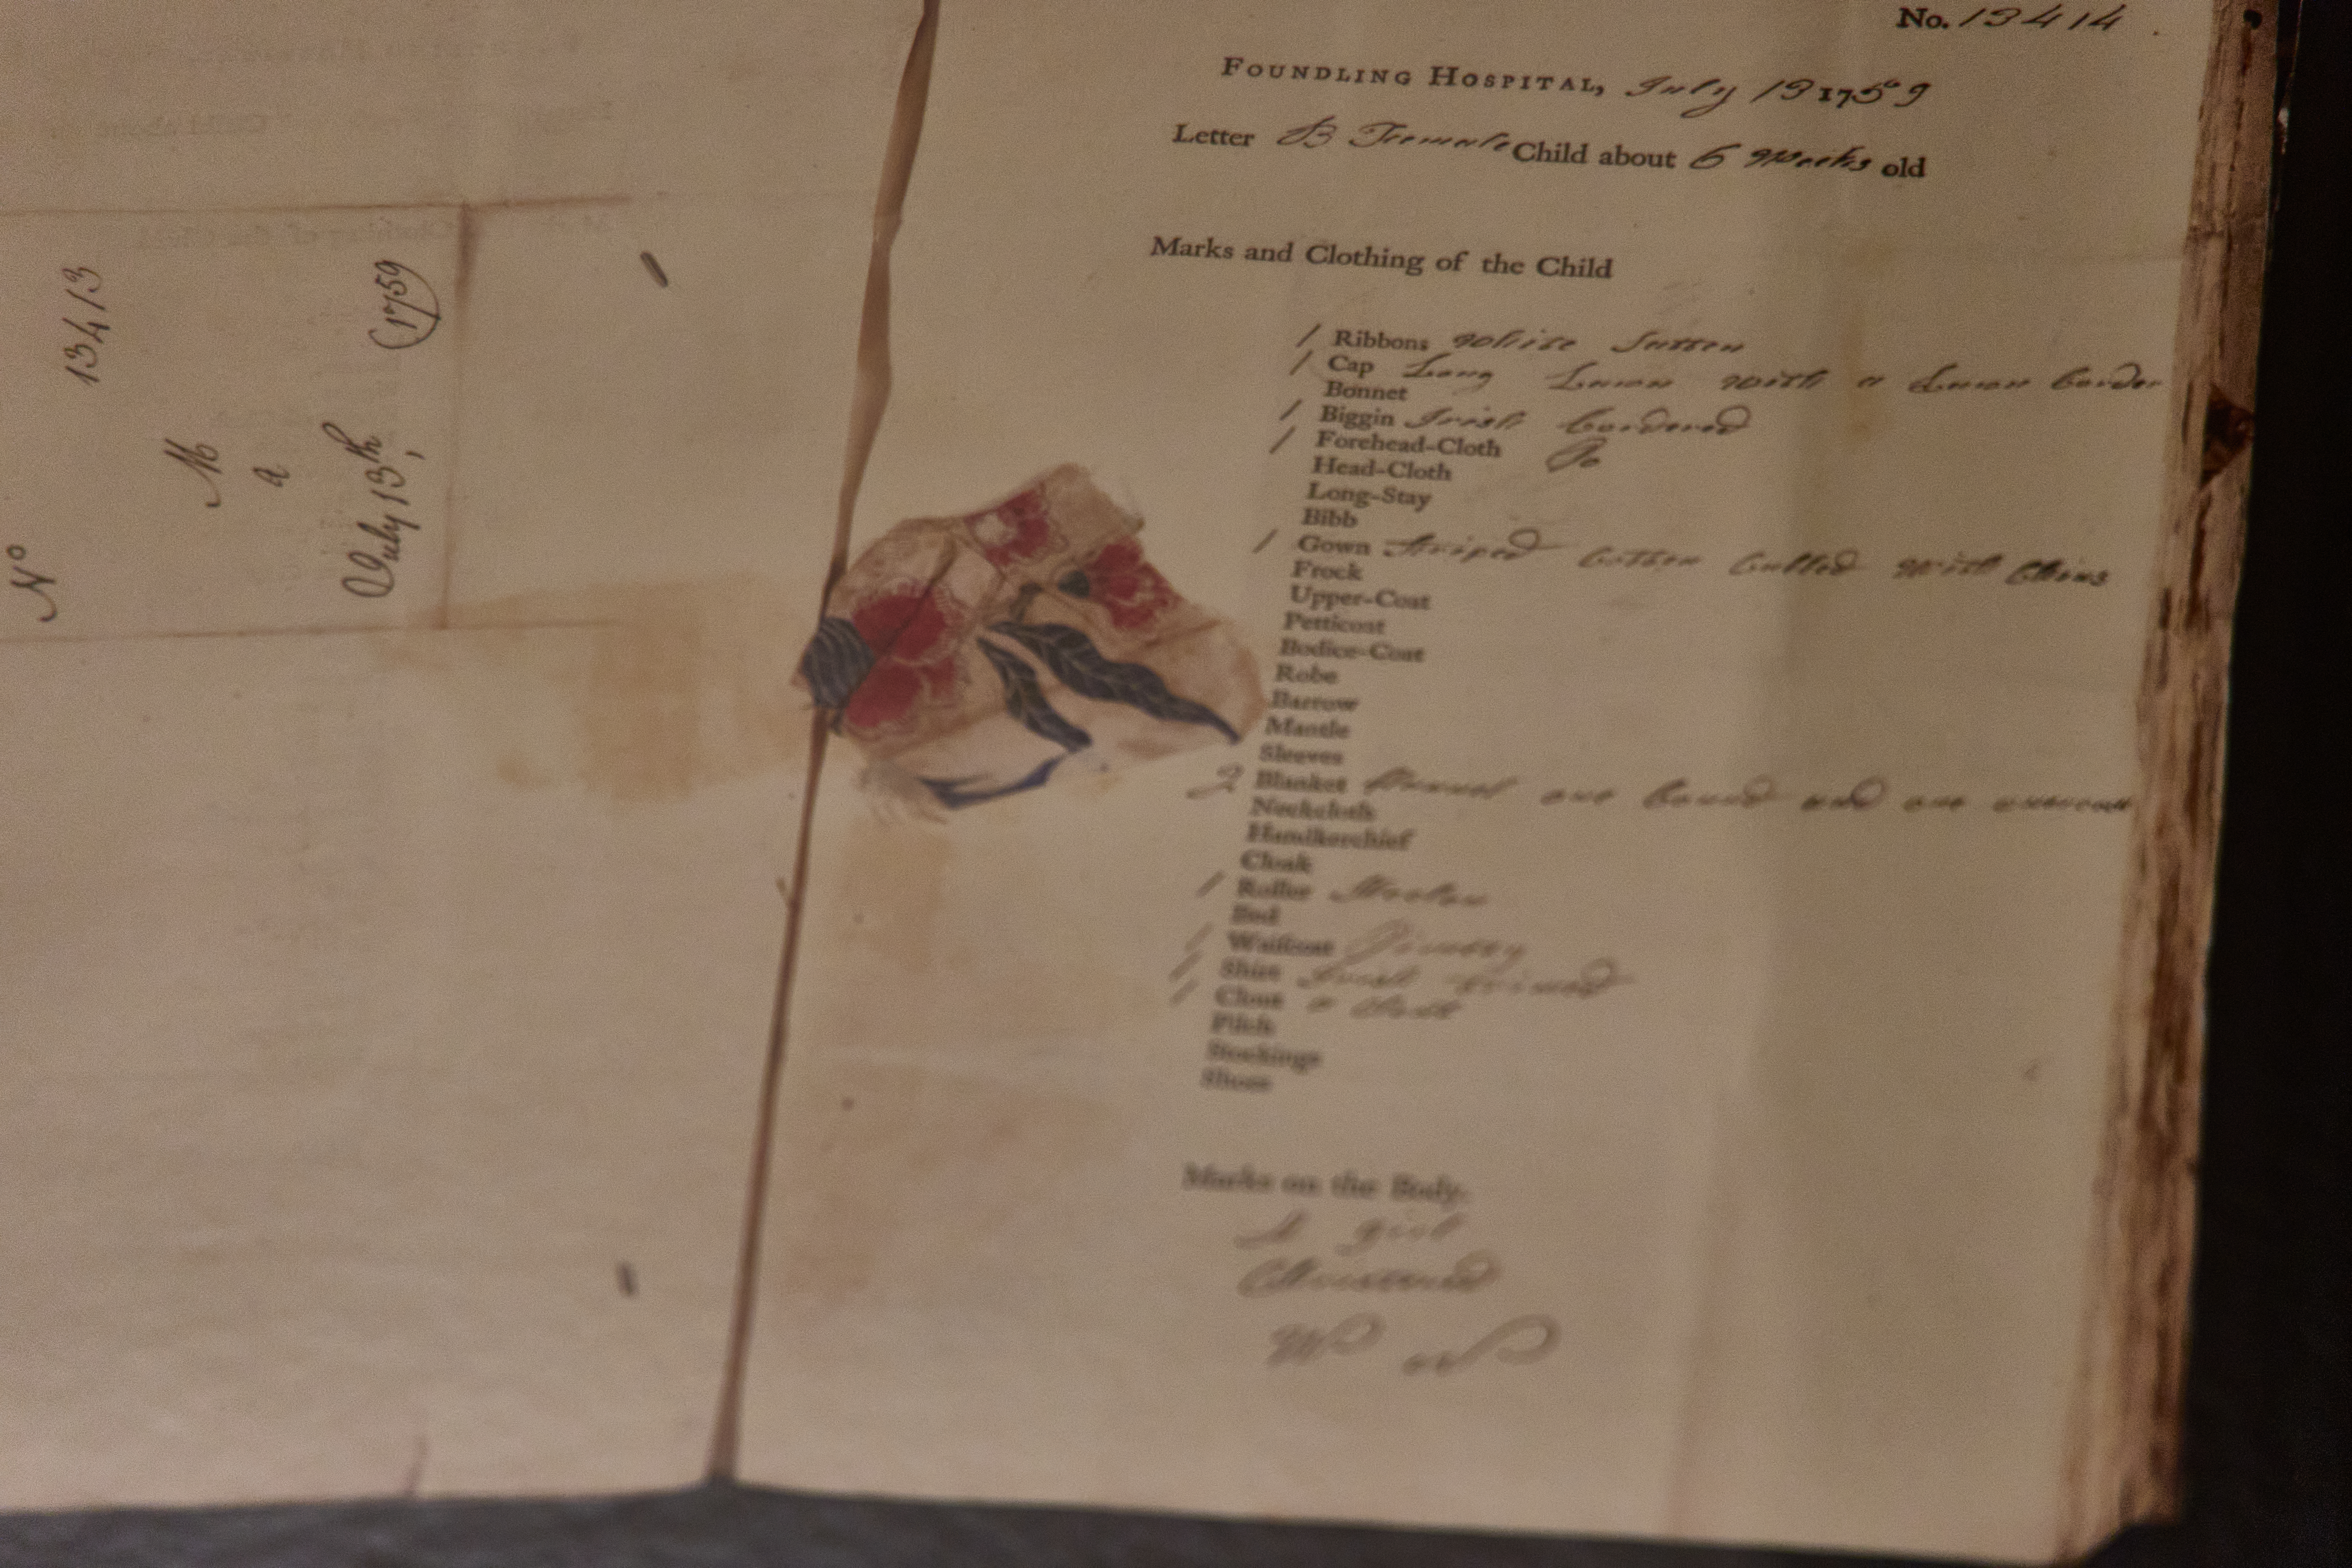 No 13413
M
a
July 13th, (1759
No. 13414.
FOUNDLING HOSPITAL, July 13 1759
Letter B Female Child about 6 Weeks old
Marks and Clothing of the Child
1 Ribbons White Satten
1 Cap Long Lawn with a Lawn border
Bonnet
1 Biggin Irish bordered
1 Forehead-Cloth Do
Head-Cloth
Long-Stay
Bibb
1 Gown Striped Cotten Cuffed with Chins
Frock
Upper-Coat
Petticoat
Bodice-Coat
Robe
Barrow
Mantle
Sleeves
2 Blanket flannel one bound and one
Neckcloth
Handkerchief
Cloak
1 Roller Woolen
Bed
1 Waistcoat Dimitty
1 Shirt Irish
1 Clout a Clout
Pilch
Stockings
Shoes
Marks on the Body.
A girl
Christened